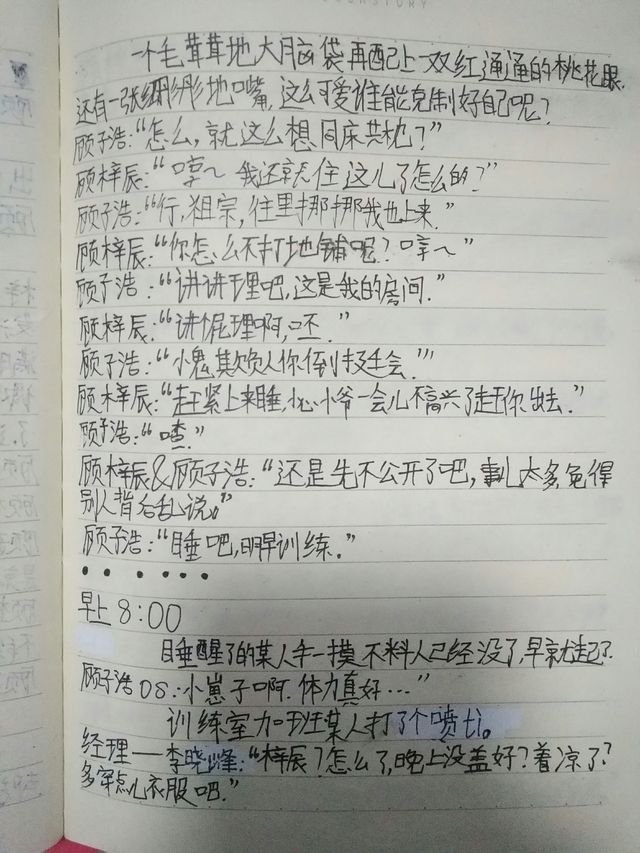 一个毛茸茸地大脑袋再配上一双红通通的桃花眼,
还有一张绷彤彤地嘴,这么可爱谁能克制好自己呢?
顾子浩:“怎么,就这么想同床共枕?”
顾梓辰:“哼~ 我还就住这儿了怎么的?”
顾子浩:“行,狙宗,往里挪挪我也上来.”
顾梓辰:“你怎么不打地铺呢?哼~”
顾子浩:“讲讲理吧,这是我的房间.”
顾梓辰:“讲屁理啊,呸.”
顾子浩:“小鬼欺负人你倒挺会.”
顾梓辰:“赶紧上来睡,小心小爷一会儿不高兴了赶你出去.”
顾子浩:“喳.”
顾梓辰&顾子浩:“还是先不公开了吧,事儿太多免得
别人背后乱说。”
顾子浩:“睡吧,明早训练.”
• • • • • •
早上8:00
睡醒了的某人手一摸不料人已经没了,早就起了.
顾子浩OS:小崽子啊.体力真好…”
训练室加班某人打了个喷嚏。
经理——李晓峰:“梓辰?怎么了,晚上没盖好?着凉了?
多穿点儿衣服吧.”